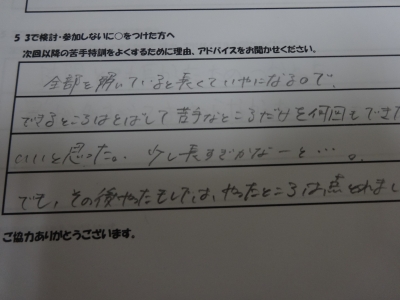 5 3で検討・参加しないに○をつけた方へ
次回以降の苦手特訓をよくするために理由、アドバイスをお聞かせください。
全部を解いていると長くていやになるので、
できるところはとばして苦手なところだけを何回もできた
いいと思った。 少し長すぎかなーと…。
でも、その後やったもしは、やったところは点とれまし
ご協力ありがとうございます。